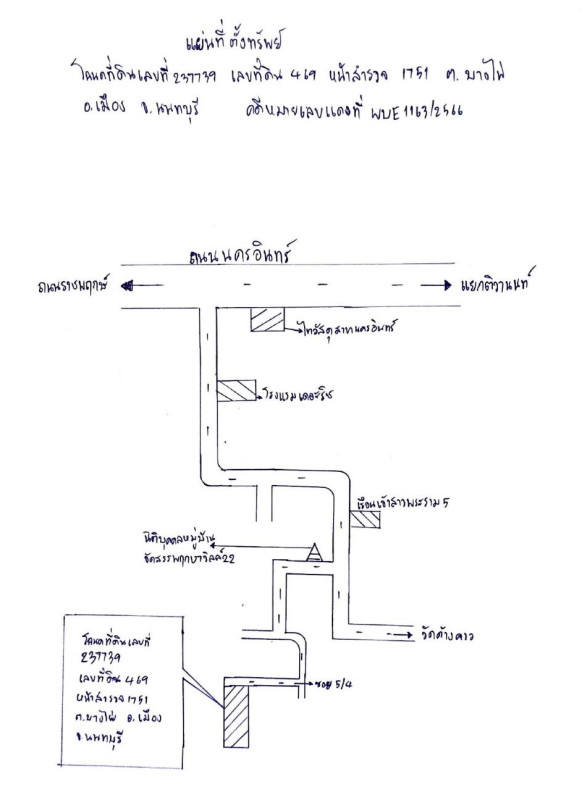 แผนที่ตั้งทรัพย์
โฉนดที่ดินเลขที่ 237739 เลขที่ดิน 469 หน้าสำรวจ 1751 ต.บางไผ่
อ.เมือง จ.นนทบุรี คดีหมายเลขแดงที่ ผบE1163/2566
ถนนนครอินทร์
ถนนราชพฤกษ์
แยกติวานนท์
ไทวัสดุสาขานครอินทร์
โรงแรมเดอะริช
เรือนเจ้าสาวพระราม 5
นิติบุคคลหมู่บ้าน
จัดสรรพฤกษาวิลล์22
วัดค้างคาว
โฉนดที่ดินเลขที่
237739
เลขที่ดิน 469
หน้าสำรวจ 1751
ต.บางไผ่ อ.เมือง
จ.นนทบุรี
ซอย 5/4